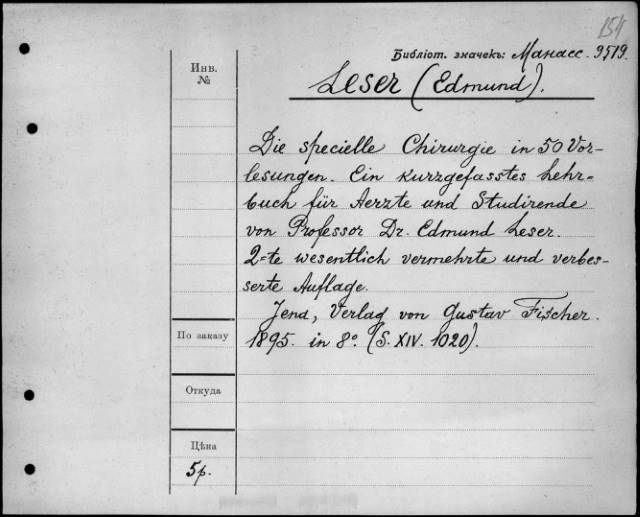 154
Библіот. значекъ: Манасс. 9519.
Инв.
№
Leser (Edmund).
Die specielle Chirurgie in 50 Vor-
lesungen. Ein kurzgefasstes Lehr-
buch für Aerzte und Studirende
von Professor Dr. Edmund Leser.
2=te wesentlich vermehrte und verbes-
serte Auflage.
Jena, Verlag von Gustav Fischer.
1895. in 8º. (S. XIV. 1020).
По заказу
Откуда
Цѣна
5р.